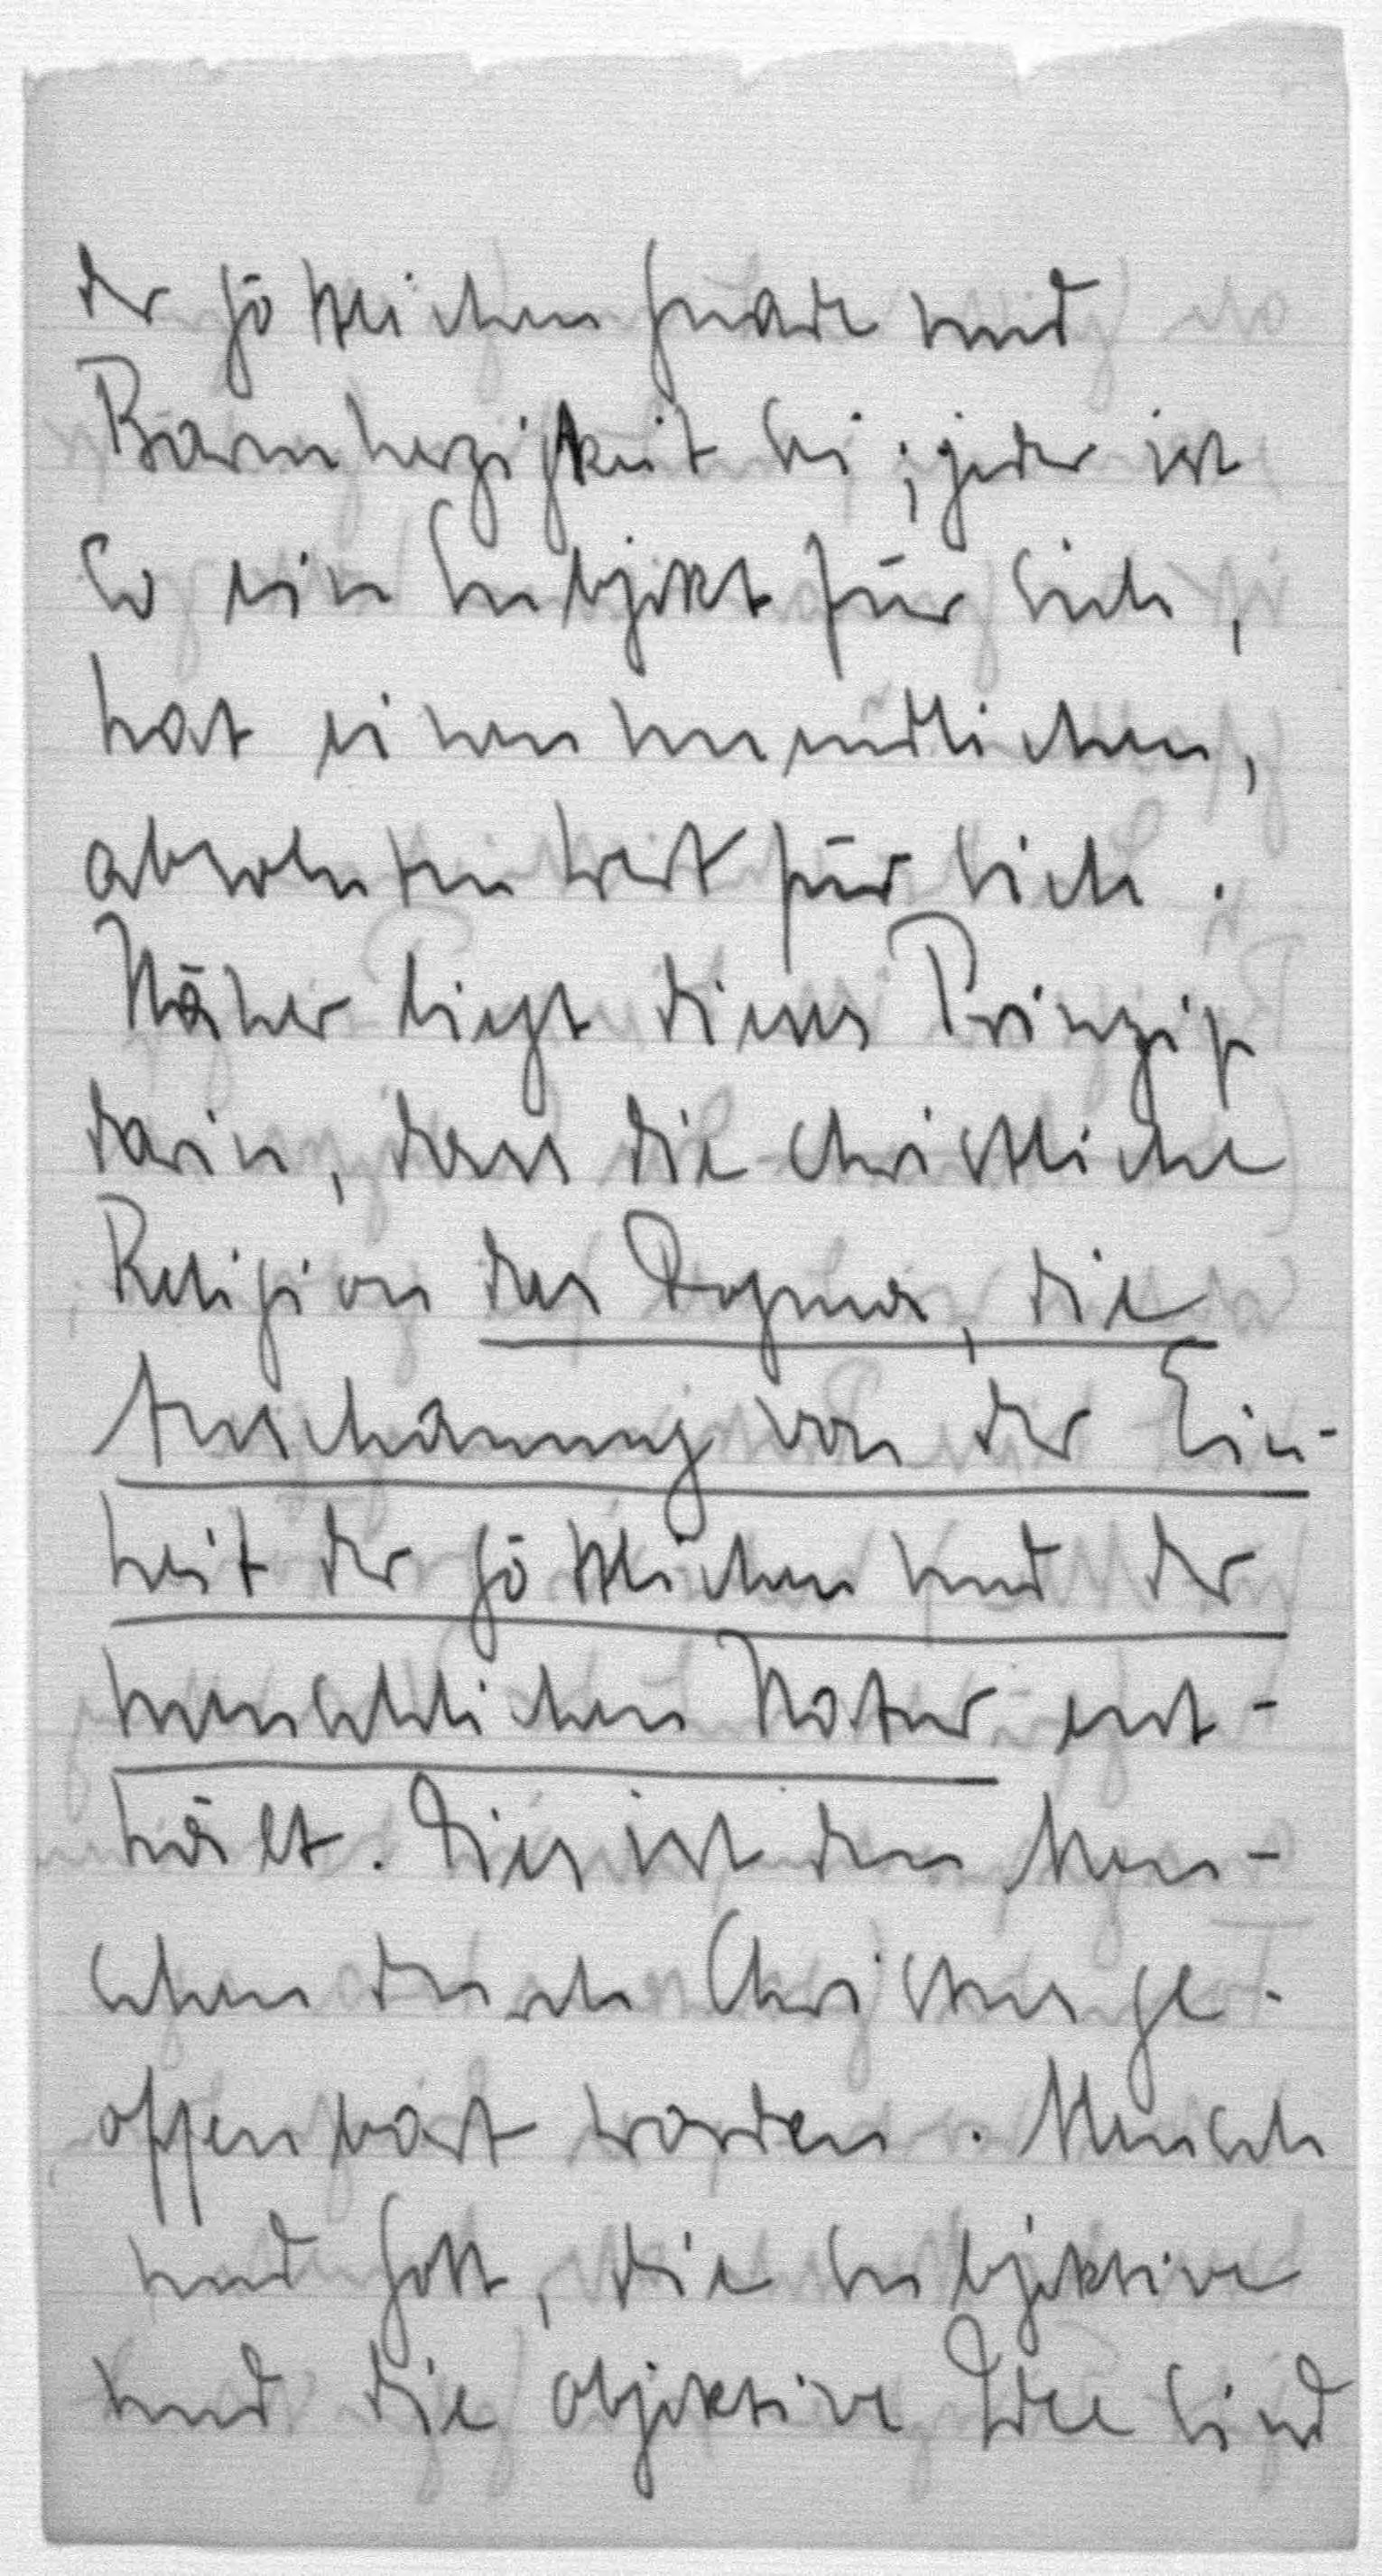 der göttlichen Gnade und
Barmherzigkeit sei; jeder ist
so ein Subjekt für sich,
hat einen unendlichen,
absoluten Wert für sich.
Näher liegt dieses Prinzip
darin, dass die christliche
Religion das Dogma, die
Anschauung von der Ein-
heit der göttlichen und der
menschlichen Natur ent-
hält. Dies ist den Men-
schen durch Christus ge-
offenbart worden. Mensch
und Gott, die subjektive
und die objektive Idee sind